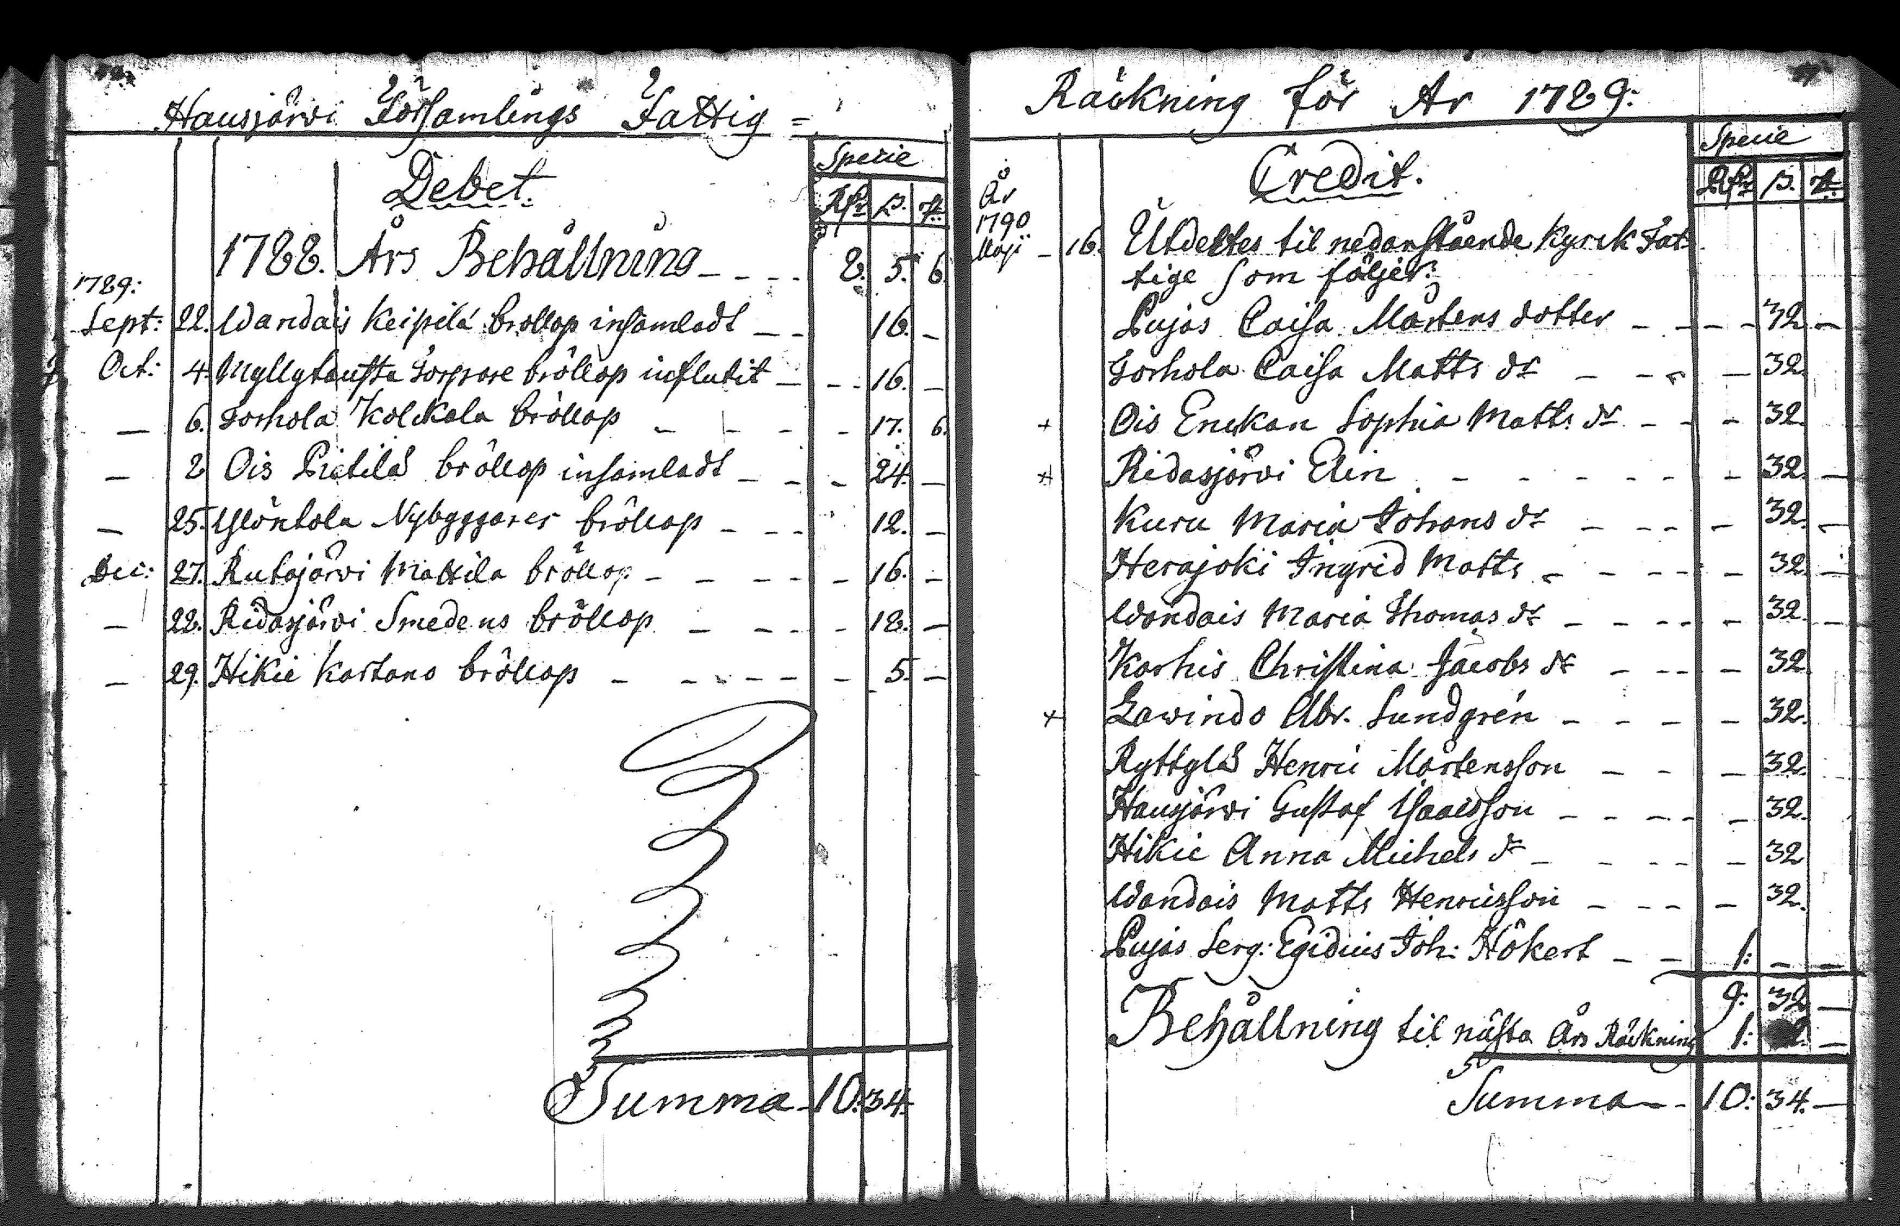 Hausjärvi Församlings Fattig =
Debet.
Specie
Rdr ß. rf.
1788. Års Behållning - - - - 8. 5. 6.
1789:
Sept: 22. Wandais Keipilä bröllop insamladt - - 16. -
Oct: 4. Myllytausta Torpare bröllop influtit - - - 16. -
- 6. Torhola Kolckola bröllop - - - - 17. 6.
- 8 Ois Pietilä bröllop insamladt - - - 24. -
- 25. Ylöntola Nybyggares bröllop - - - 12. -
Dec: 27. Rutajärvi Mattila bröllop - - - - - 16. -
- 28. Ridasjärvi Smedens bröllop - - - - 18. -
- 29. Hikie Kartano bröllop - - - - - - 5. -
Summa - 10: 34.
Räckning för År 1789:
Credit.
Specie
Rdr ß. rf.
År
1790
Maji - 16. Utdeltes til nedanstående Kyrck Fat-
tige som följer:
Pujas Caisa Mårtens dotter - - - - 32 -
Torhola Caisa Matts dr - - - - 32.
+ Ois Enckan Sophia Matts dr - - - 32.
+ Ridasjärvi Elin - - - - - - 32. -
Kuru Maria Johans dr - - - - - 32. -
Herajoki Ingrid Matts - - - - - 32. -
Wandais Maria Thomas dr - - - - - 32. -
Karhis Christina Jacobs dr - - - - 32.
+ Lavindo Abr. Sundgrén - - - - - 32.
Ryttylä Henric Mårtensson - - - 32.
Hausjärvi Gustaf Isaacsson - - - - - 32.
Hikie Anna Michels dr - - - - - 32
Wandais Matts Henricsson - - - - 32.
Pujas Serg: Egidius Joh: Hökert - - 1: - -
9: 32 -
Behållning til nästa Års Räckning 1: 2. -
Summa - - 10: 34. -